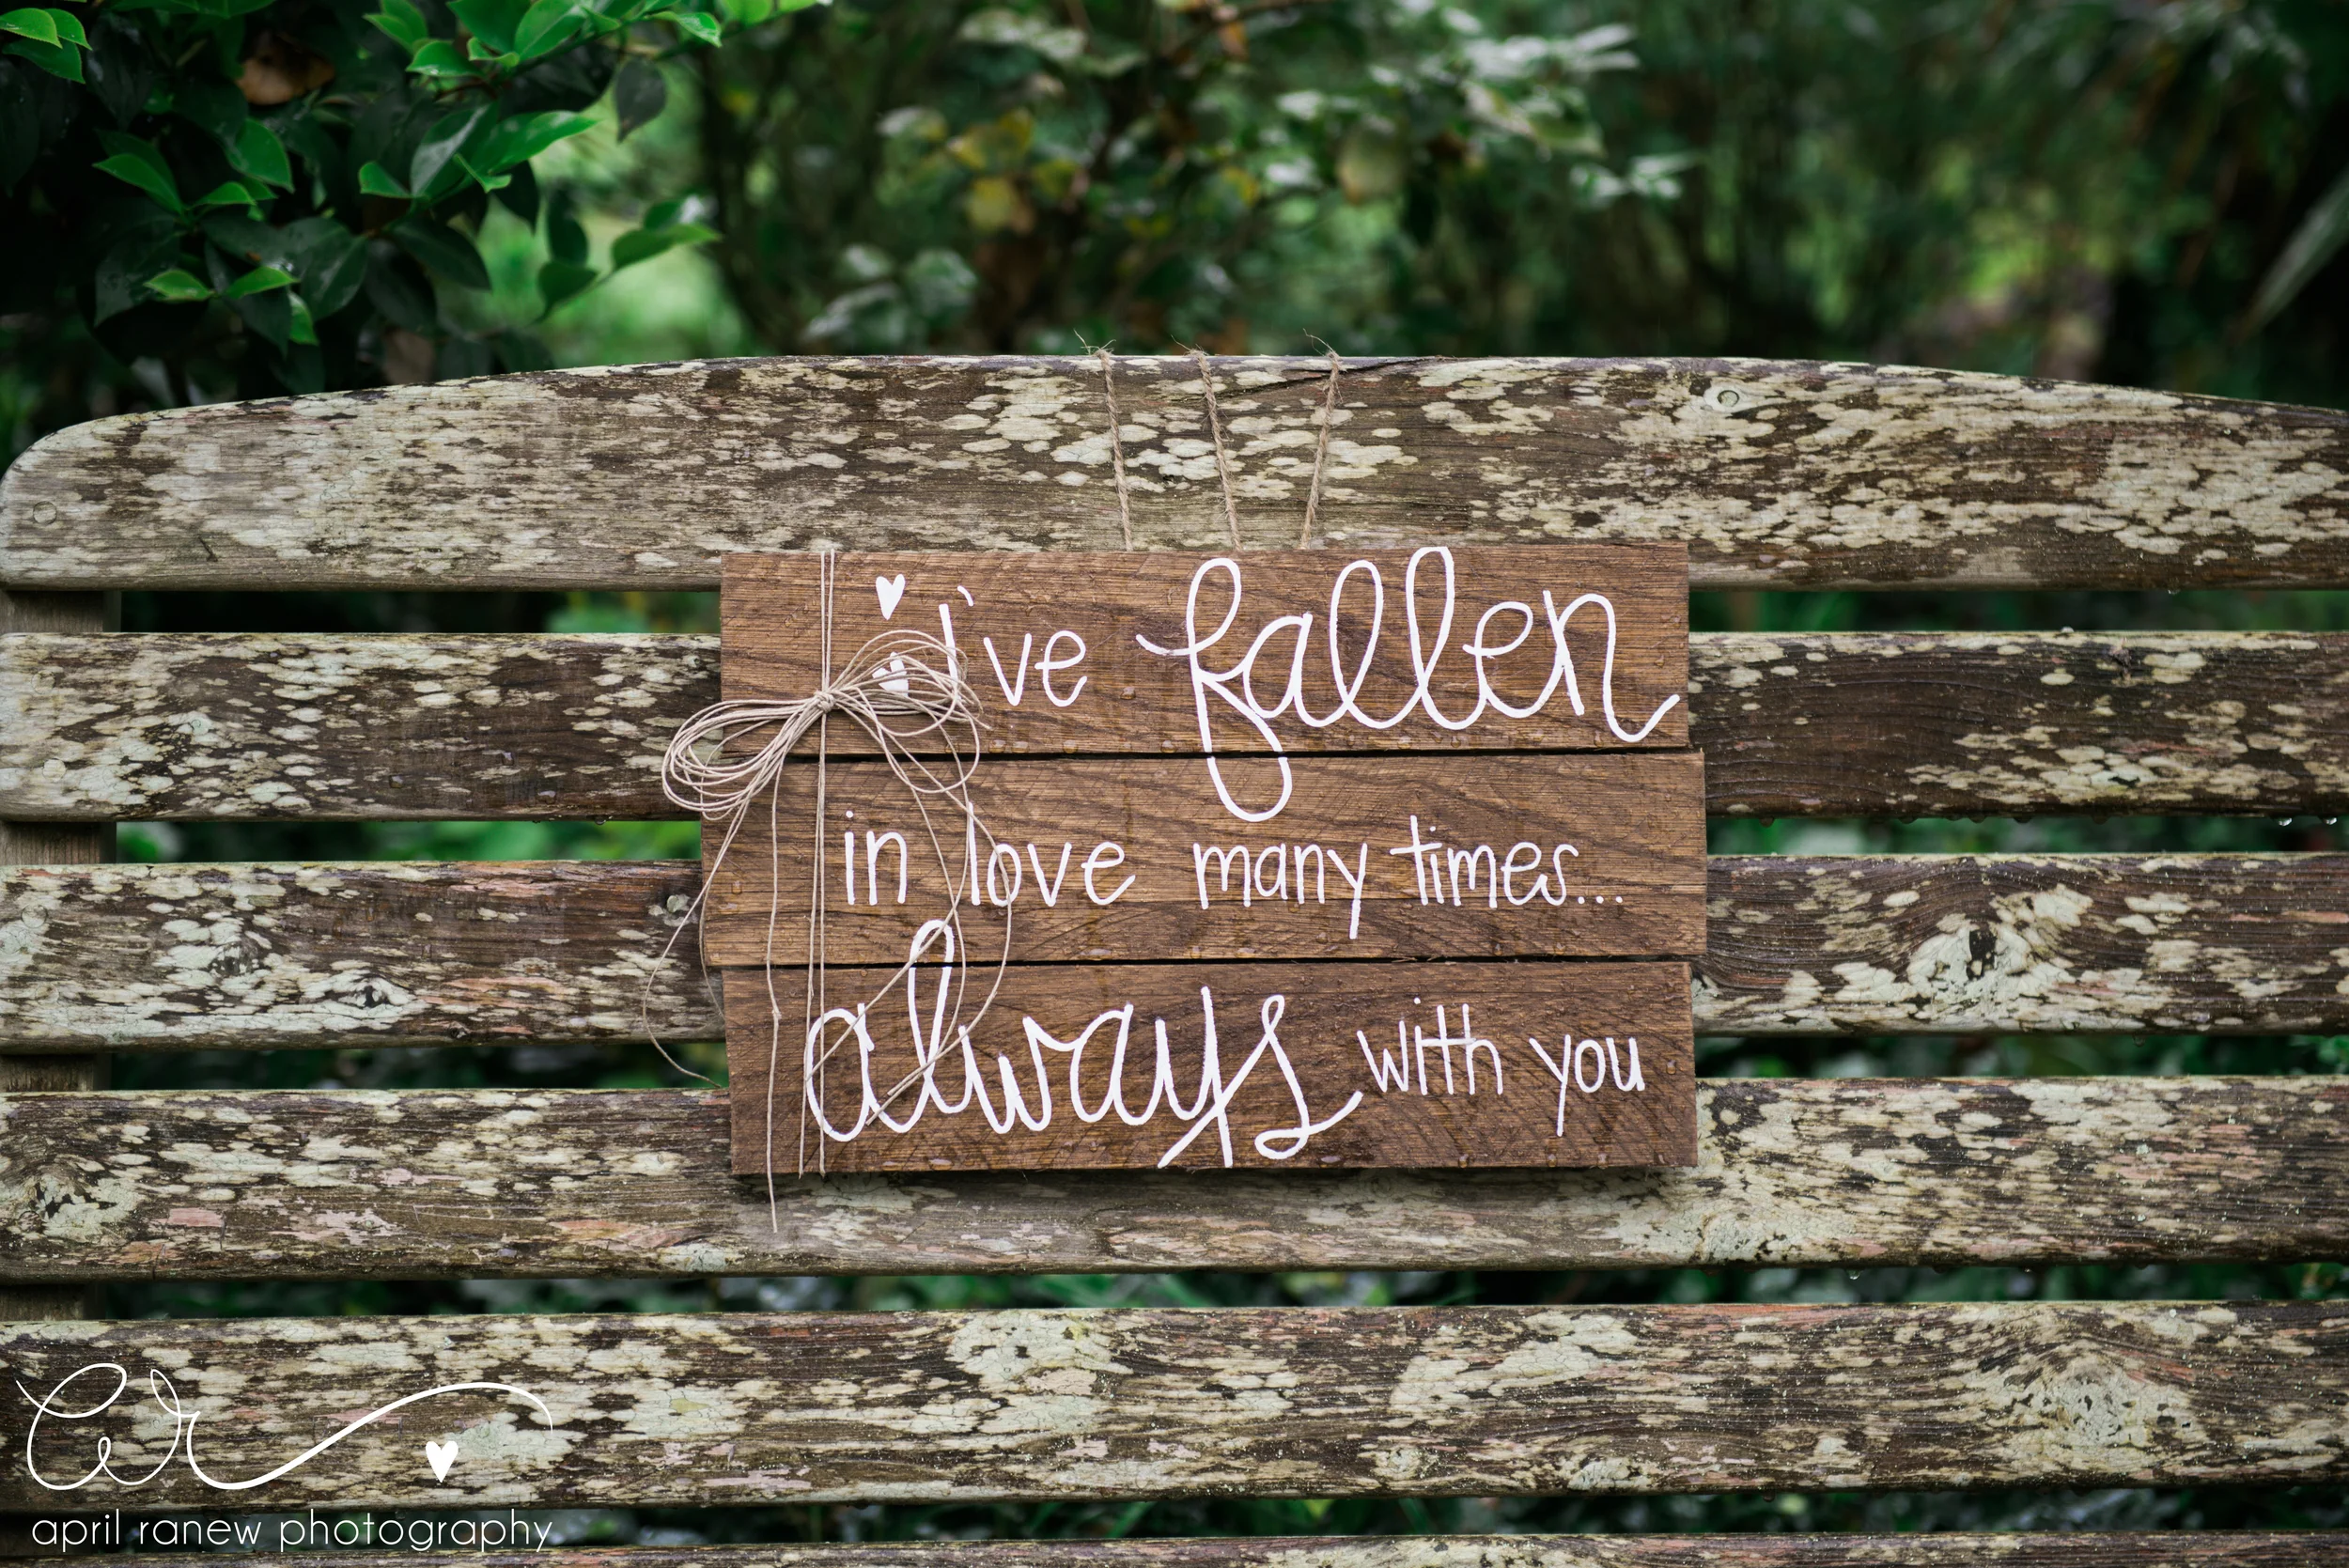 i've fallen
in love many times...
always with you
april ranew photography